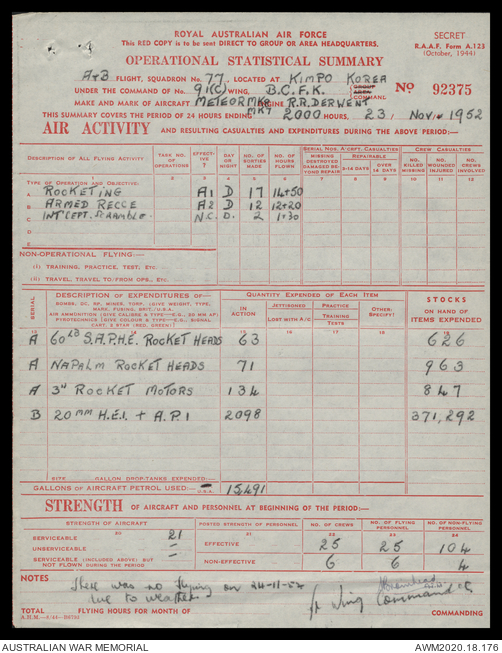 ROYAL AUSTRALIAN AIR FORCE
This RED COPY is to be sent DIRECT TO GROUP OR AREA HEADQUARTERS.
SECRET
R.A.A.F. Form A.123
(October, 1944)
OPERATIONAL STATISTICAL SUMMARY
A+B FLIGHT, SQUADRON No. 77, LOCATED AT KIMPO KOREA
UNDER THE COMMAND OF No. 91(C) WING, B.C.F.K. GROUP AREA COMMAND
No 92375
MAKE AND MARK OF AIRCRAFT METEOR MK8 ENGINE R.R. DERWENT
MK7
THIS SUMMARY COVERS THE PERIOD OF 24 HOURS ENDING 2000 HOURS, 23, Nov. 1952
AIR ACTIVITY AND RESULTING CASUALTIES AND EXPENDITURES DURING THE ABOVE PERIOD:—
DESCRIPTION OF ALL FLYING ACTIVITY
TASK NO. OF OPERATIONS
EFFECTIVE?
DAY OR NIGHT
NO. OF SORTIES MADE
NO. OF HOURS FLOWN
SERIAL NOS. A/CRFT. CASUALTIES
MISSING DESTROYED DAMAGED BEYOND REPAIR
REPAIRABLE
2-14 DAYS
OVER 14 DAYS
CREW CASUALTIES
NO. KILLED MISSING
NO. WOUNDED INJURED
NO. CREWS INVOLVED
TYPE OF OPERATION AND OBJECTIVE:
A ROCKETING A1 D 17 14+50
B ARMED RECCE A2 D 12 12+20
C INTCEPT. Scramble. N.C. D. 2 1+30
D
E
NON-OPERATIONAL FLYING:—
(i) TRAINING, PRACTICE, TEST, ETC.
(ii) TRAVEL, TRAVEL TO/FROM OPS., ETC.
SERIAL
DESCRIPTION OF EXPENDITURES OF—
BOMBS, DC, RP, MINES, TORP. (GIVE WEIGHT, TYPE, MARK, FUSING, BRIT./U.S.A.
AIR AMMUNITION (GIVE CALIBRE & TYPE—E.G., 20 MM AP)
PYROTECHNICS (GIVE COLOUR & TYPE—E.G., SIGNAL CART. 2 STAR (RED, GREEN))
QUANTITY EXPENDED OF EACH ITEM
IN ACTION
JETTISONED
LOST WITH A/C
PRACTICE
TRAINING TESTS
OTHER: SPECIFY!
STOCKS
ON HAND OF ITEMS EXPENDED
A 60LB S.A.P.H.E. ROCKET HEADS 63 626
A NAPALM ROCKET HEADS 71 963
A 3" ROCKET MOTORS 134 847
B 20MM H.E.I. + A.P.I 2098 371,292
SIZE GALLON DROP-TANKS EXPENDED:—
GALLONS OF AIRCRAFT PETROL USED:— U.S.A. 15,491
STRENGTH OF AIRCRAFT AND PERSONNEL AT BEGINNING OF THE PERIOD:—
STRENGTH OF AIRCRAFT
POSTED STRENGTH OF PERSONNEL
NO. OF CREWS
NO. OF FLYING PERSONNEL
NO. OF NON-FLYING PERSONNEL
SERVICEABLE 21 EFFECTIVE 25 25 104
UNSERVICEABLE —
SERVICEABLE (INCLUDED ABOVE) BUT NOT FLOWN DURING THE PERIOD — NON-EFFECTIVE 6 6 4
NOTES There was no flying on 24-11-52
due to weather.
for Wing Commander
TOTAL FLYING HOURS FOR MONTH OF
COMMANDING
AUSTRALIAN WAR MEMORIAL
AWM2020.18.176